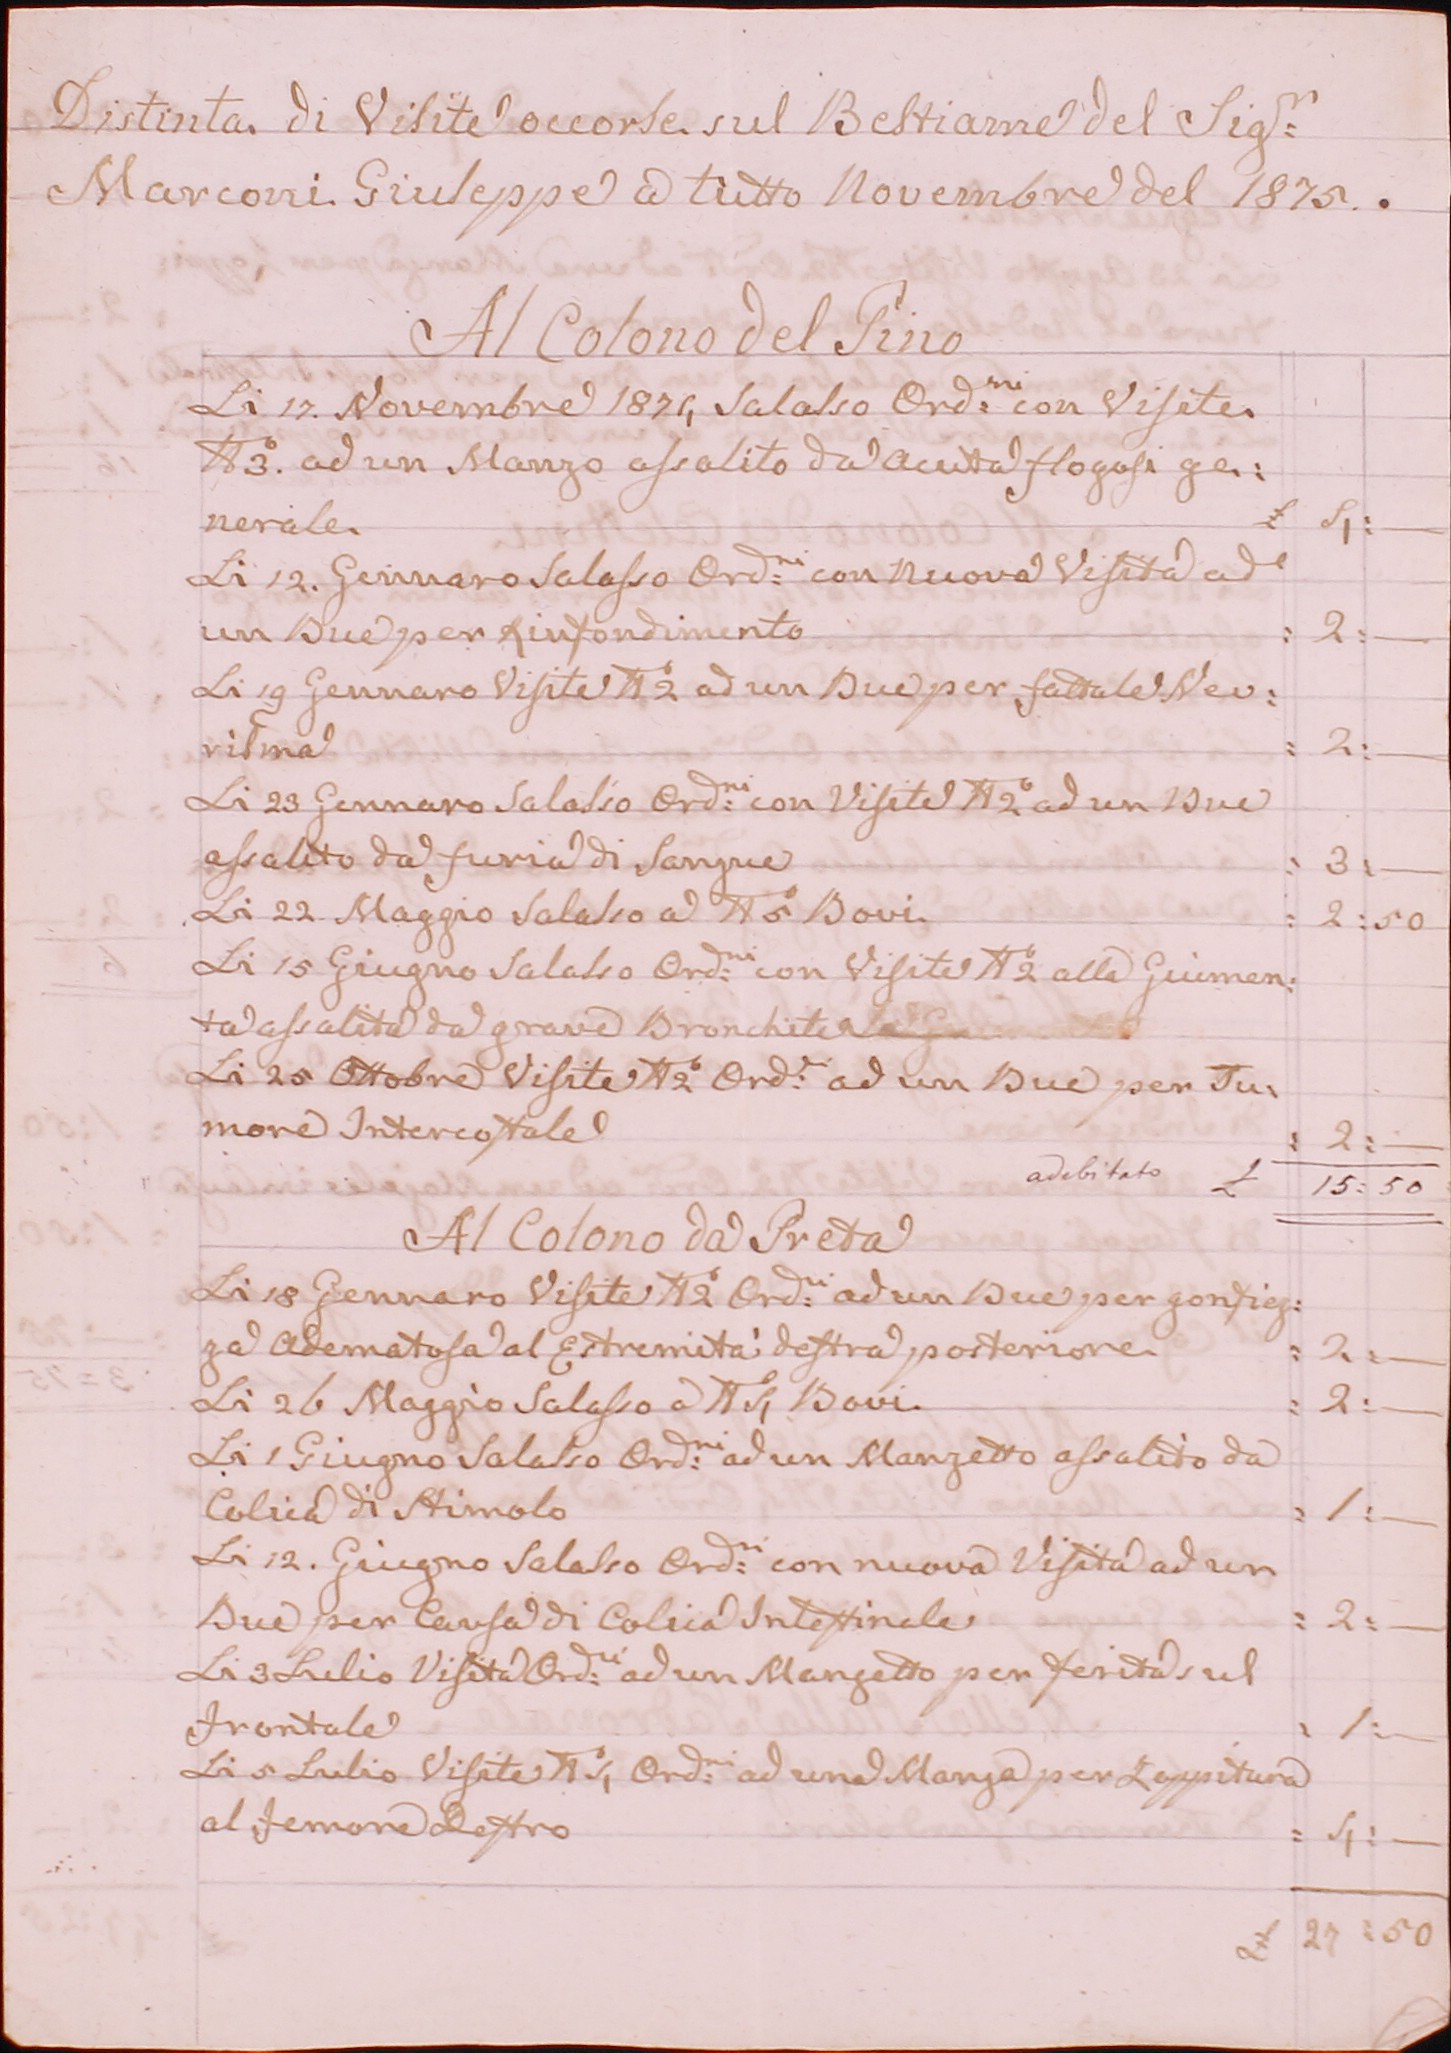 Distinta di Visite occorse sul Bestiame del Sig.r
Marconi Giuseppe a tutto Novembre del 1875.
Al Colono del Pino
Li 17. Novembre 1874 Salasso Ord.ni con Visite
N° 3. ad un Manzo assalito da acuta flogosi ge:
nerale £ 4:—
Li 12. Gennaro Salasso Ord.ni con nuova Visita ad
un Bue per Rinfondimento = 2:—
Li 19 Gennaro Visite N° 2 ad un Bue per fattale Nev:
risma = 2:—
Li 23 Gennaro Salasso Ord.ni con Visite N° 2 ad un Bue
assalito da furia di Sangue = 3:—
Li 22 Maggio Salasso a N° 5 Bovi = 2:50
Li 15 Giugno Salasso Ord.ni con Visite N° 2 alla Giumen:
ta assalita da grave Bronchite
Li 25 Ottobre Visite N° 2 Ord.i ad un Bue per Tu:
more Intercostale = 2:—
adebitato £ 15:50
Al Colono da Preta
Li 18 Gennaro Visite N° 2 Ord.ni ad un Bue per gonfiez:
za Adematosa al Estremità destra posteriore = 2:—
Li 26 Maggio Salasso a N° 4 Bovi = 2:—
Li 1 Giugno Salasso Ord.ni ad un Manzetto assalito da
Colica di Stimolo = 1:—
Li 12. Giugno Salasso Ord.ni con nuova Visita ad un
Bue per Causa di Colica Intestinale = 2:—
Li 3 Lulio Visita Ord.ni ad un Manzetto per ferita sul
frontale = 1:—
Li 5 Lulio Visite N° 4 Ord.ni ad una Manza per Zoppitura
al femore Destro = 4:—
£ 27:50